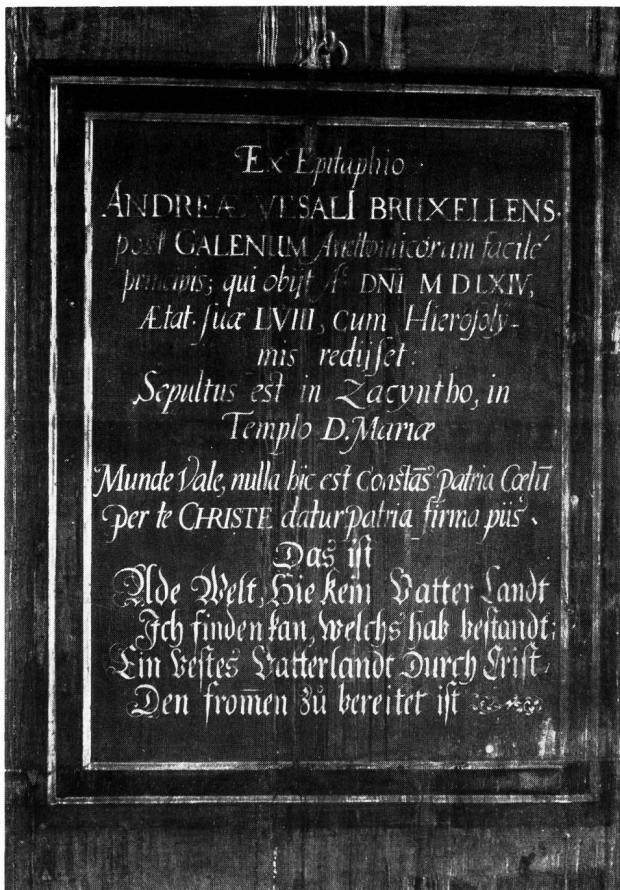 Ex Epitaphio
ANDREÆ VESALI BRUXELLENS.
post GALENUM Anatomicorum facile
principis; qui obijt Aº DNI M D LXIV,
Ætat. suæ LVIII, cum Hierosoly-
mis redijset:
Sepultus est in Zacyntho, in
Templo D. Mariæ
Munde Vale, nulla hic est Constās patria Cœlū
per te CHRISTE datur patria firma piis.
Das ist
Ade Welt, Hie kein Vatter Landt
Ich finden kan, welchs hab bestandt;
Ein Vestes Vatterlandt Durch Crist,
Den from̄en zů bereitet ist